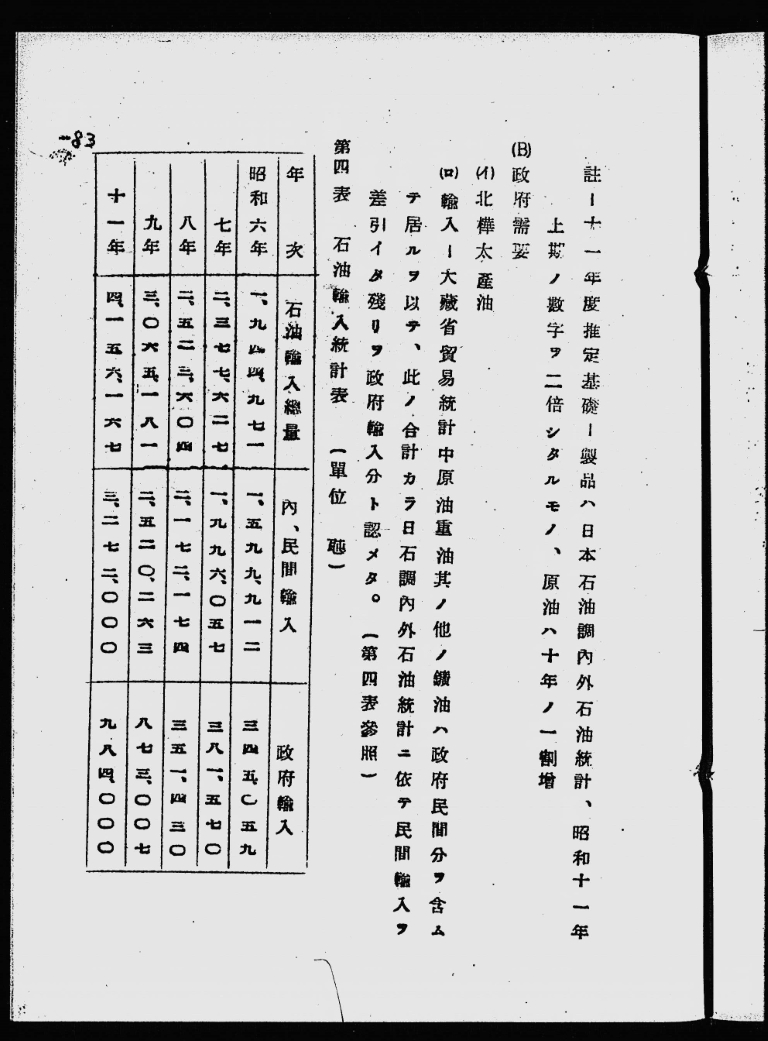 註ー十一年度推定基礎ー製品ハ日本石油調內外石油統計、昭和十一年
上期ノ數字ヲ二倍シタルモノ、原油ハ十年ノ一割增
(B)政府需要
(イ)北樺太產油
(ロ)輸入ー大藏省貿易統計中原油重油其ノ他ノ鑛油ハ政府民間分ヲ含ム
テ居ルヲ以テ、此ノ合計カラ日石調內外石油統計ニ依テ民間輸入ヲ
差引イタ殘リヲ政府輸入分ト認メタ。(第四表參照)
第四表 石油輸入統計表 (單位 竏)
年次 石油輸入總量 內、民間輸入 政府輸入
昭和六年 一、九四四、九七一 一、五九九、九一二 三四五、〇五九
七年 二、三七七、六二七 一、九九六、〇五七 三八一、五七〇
八年 二、五二三、六〇四 二、一七二、一七四 三五一、四三〇
九年 三、〇六五、一八一 二、五二〇、二六三 八七三、〇〇七
十一年 四、一五六、一六七 三、二七二、〇〇〇 九八四、〇〇〇
-83